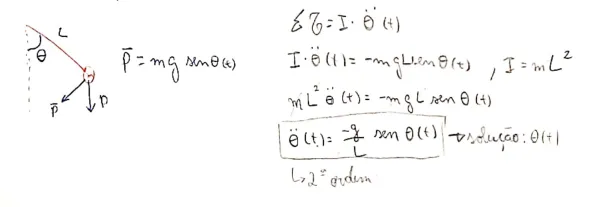 L
θ
P̄
P
P̄ = mg senθ(t)
Σ τ = I · θ̈(t)
I · θ̈(t) = -mgL senθ(t) , I = mL²
mL² θ̈(t) = -mgL senθ(t)
θ̈(t) = -g/L sen θ(t) → solução: θ(t)
↳ 2ª ordem